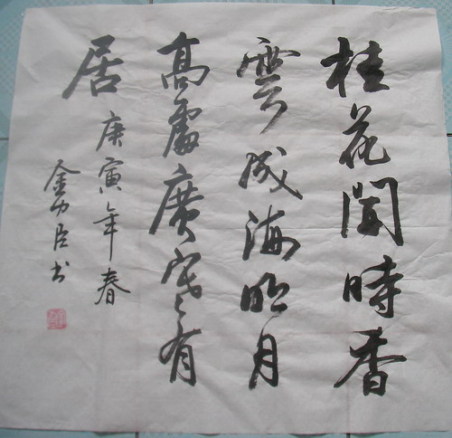 桂花開時香
雲成海明月
高處廣寒有
居
庚寅年春
金 臣书